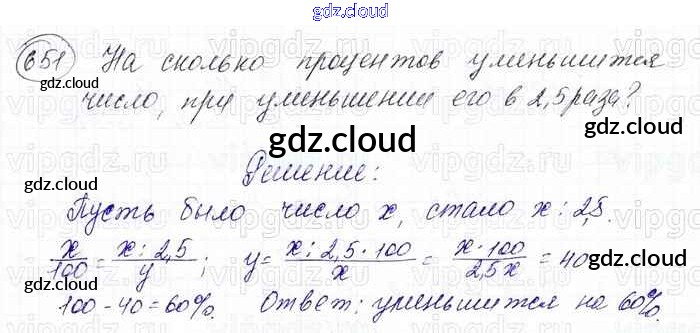 gdz.cloud
651 На сколько процентов уменьшится
число, при уменьшении его в 2,5 раза?
gdz.cloud
gdz.cloud
gdz.cloud
gdz.cloud
Решение:
gdz.cloud
Пусть было число x, стало x : 2,5.
x/100 = x : 2,5/y ; y = x : 2,5 · 100/x = x · 100/2,5x = 40
gdz.cloud
100 - 40 = 60%. Ответ: уменьшится на 60%.
gdz.cloud
gdz.cloud